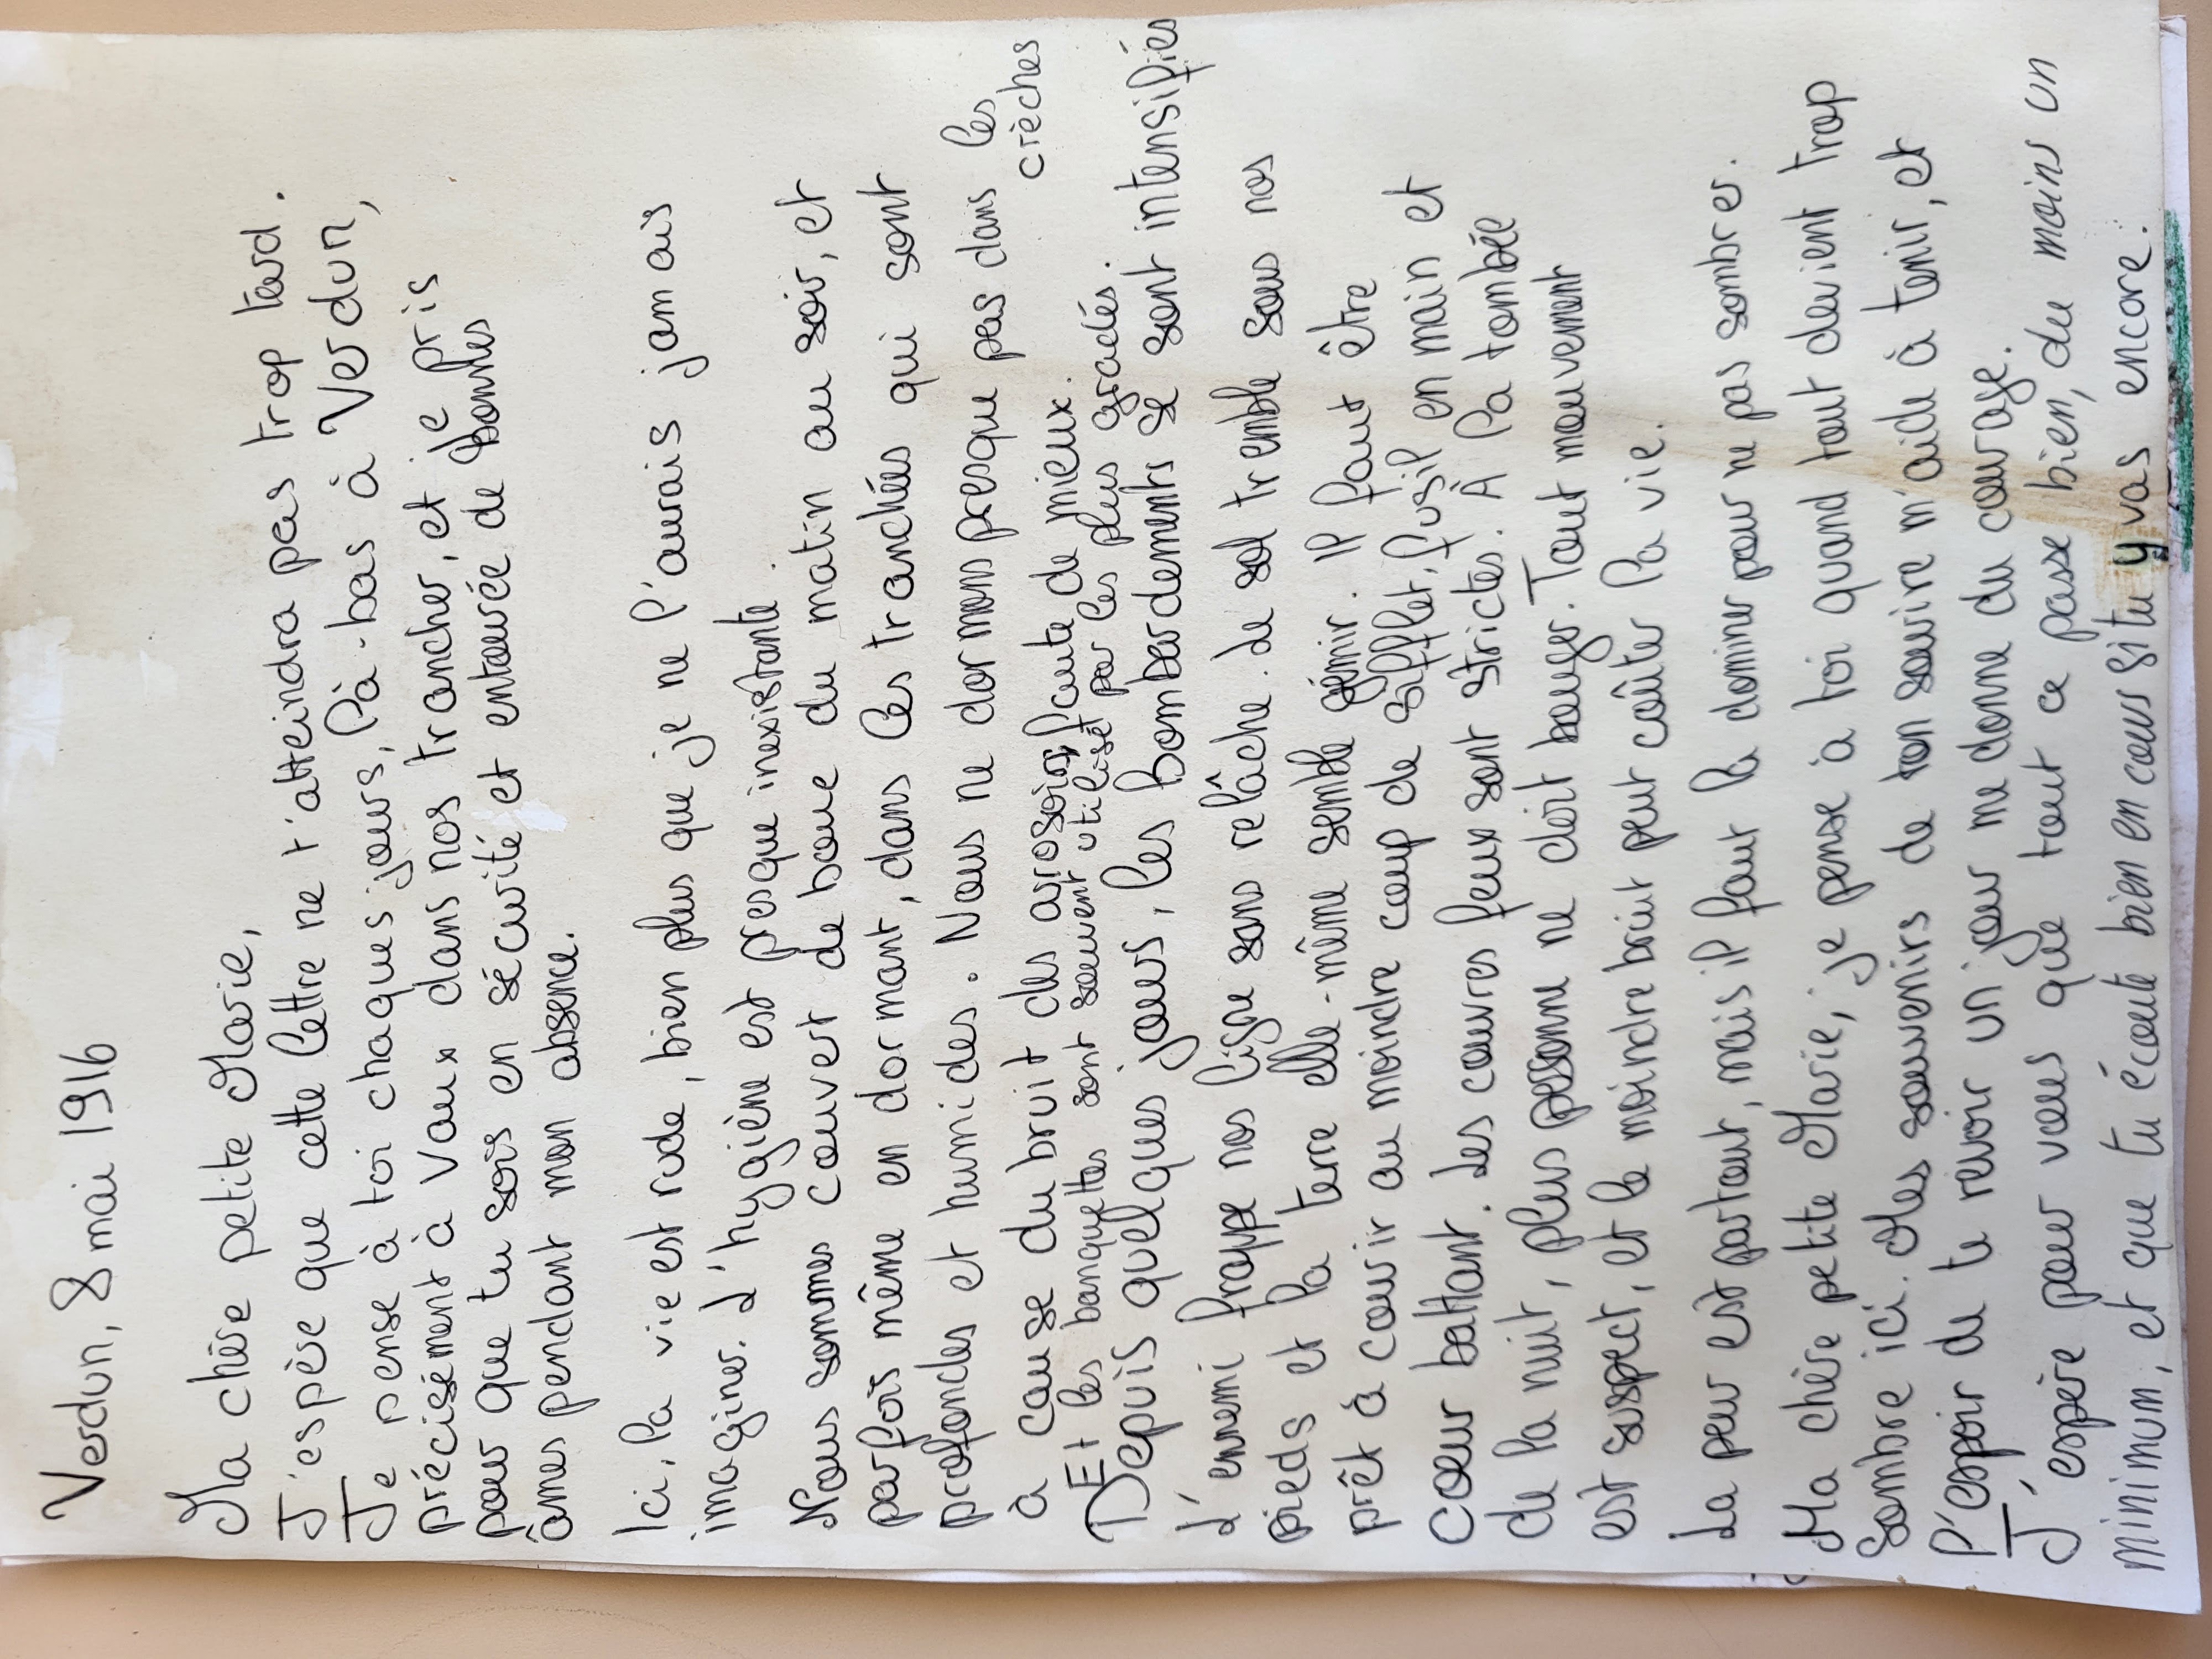 Verdun, 8 mai 1916
Ma chère petite Marie,
J'espère que cette lettre ne t'atteindra pas trop tard.
Je pense à toi chaques jours, là-bas à Verdun,
précisément à Vaux dans nos trancher, et je pris
pour que tu sois en sécurité et entourée de bonnes
âmes pendant mon absence.
Ici, la vie est rude, bien plus que je ne l'aurais jamais
imaginer. L'hygiène est presque inexistante.
Nous sommes couvert de boue du matin au soir, et
parfois même en dormant, dans les tranchées qui sont
profondes et humides. Nous ne dormons presque pas dans les
crèches
à cause du bruit des arosoirs, faute de mieux.
Et les banquettes sont souvent utiliset par les plus gradés.
Depuis quelques jours, les bombardements se sont intensifiés
L'ennemi frappe nos ligne sans relâche. Le sol tremble sous nos
pieds et la terre elle-même semble gémir. Il faut être
prêt à courir au moindre coup de sifflet, fusil en main et
coeur battant. Les couvres feux sont strictes. À la tombée
de la nuit, plus personne ne doit bouger. Tout mouvement
est suspect, et le moindre bruit peut coûter la vie.
La peur est partout, mais il faut la dominer pour ne pas sombrer.
Ma chère petite Marie, je pense à toi quand tout devient trop
sombre ici. Mes souvenirs de ton sourire m'aide à tenir, et
l'espoir de te revoir un jour me donne du courage.
J'espère pour vous que tout ce passe bien, du moins un
minimum, et que tu écoute bien en cours si tu y vas encore.